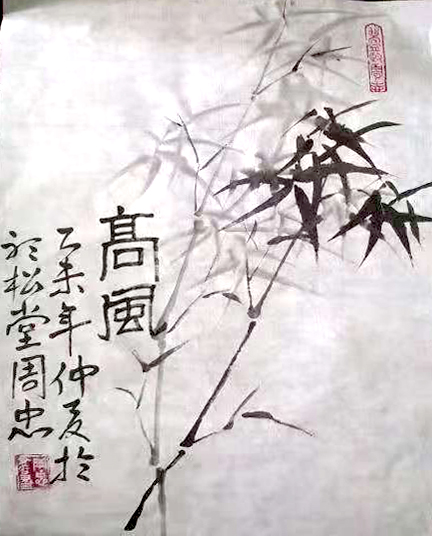 髙風
乙未年仲夏於
松堂周忠